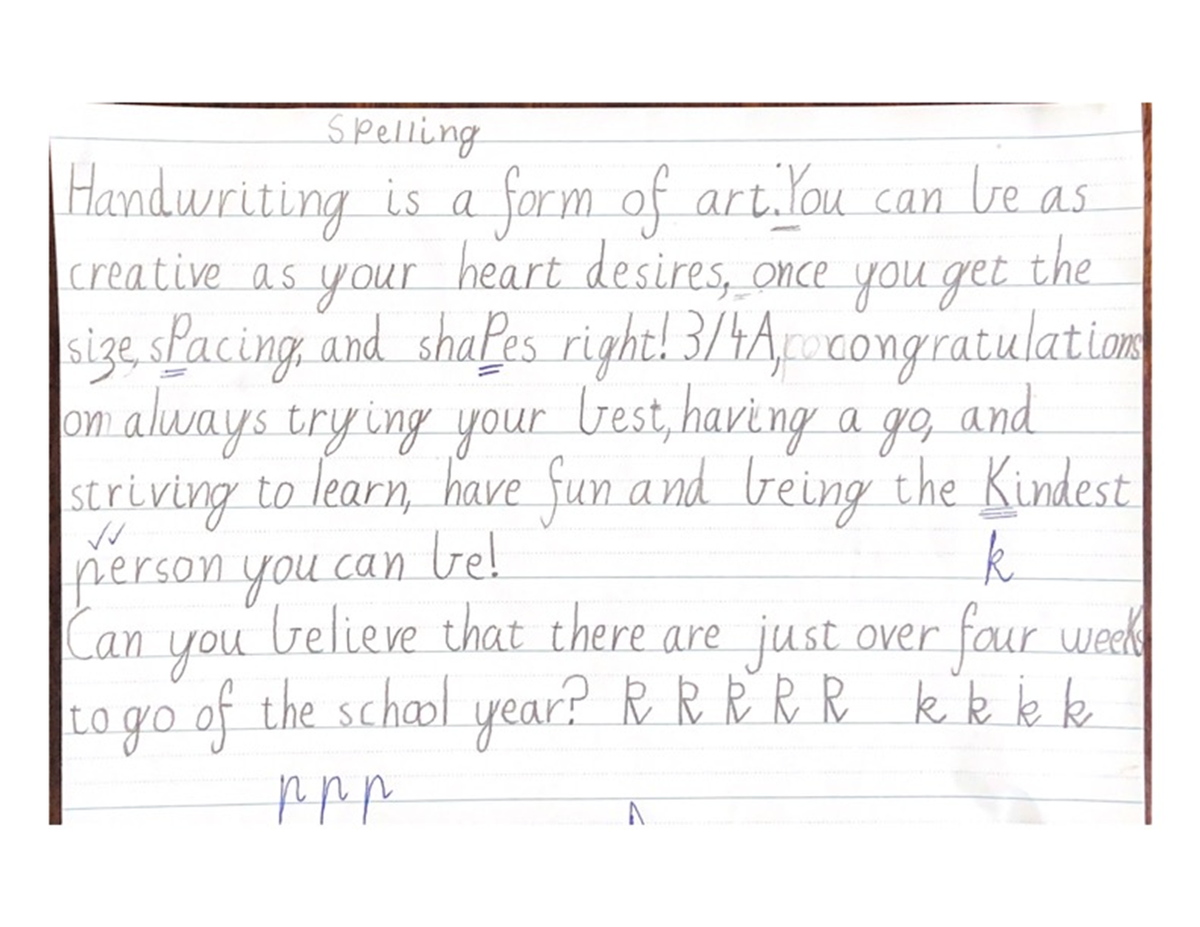 Spelling
Handwriting is a form of art. You can be as
creative as your heart desires, once you get the
size, sPacing, and shaPes right! 3/4A, congratulations
on always trying your best, having a go, and
striving to learn, have fun and being the Kindest
person you can be!
k
Can you believe that there are just over four weeks
to go of the school year? k k k k k k k k k
p p p